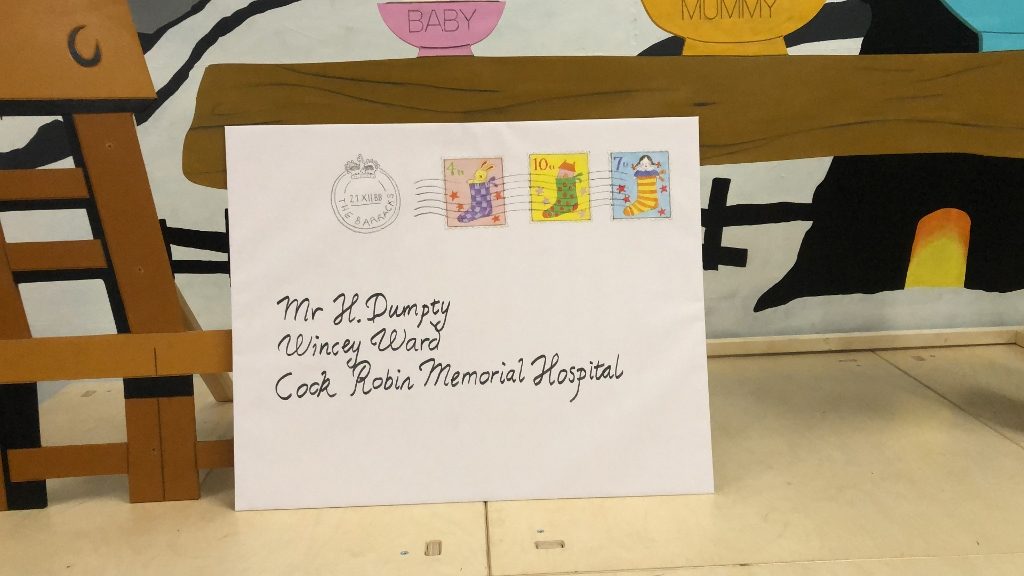 BABY
MUMMY
21 XII 88
THE BARRACKS
4
10
7
Mr H. Dumpty
Wincey Ward
Cock Robin Memorial Hospital